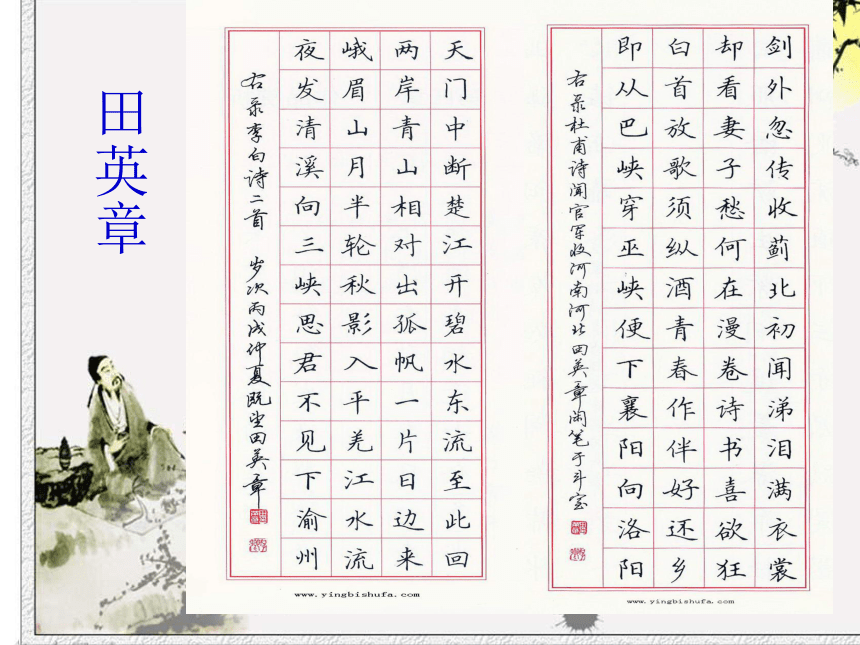 田英章
剑外忽传收蓟北初闻涕泪满衣裳
却看妻子愁何在漫卷诗书喜欲狂
白首放歌须纵酒青春作伴好还乡
即从巴峡穿巫峡便下襄阳向洛阳
右录杜甫诗闻官军收河南河北田英章闲笔于斗室
www.yingbishufa.com
天门中断楚江开碧水东流至此回
两岸青山相对出孤帆一片日边来
峨眉山月半轮秋影入平羌江水流
夜发清溪向三峡思君不见下渝州
右录李白诗二首 岁次丙戌仲夏既望田英章
www.yingbishufa.com